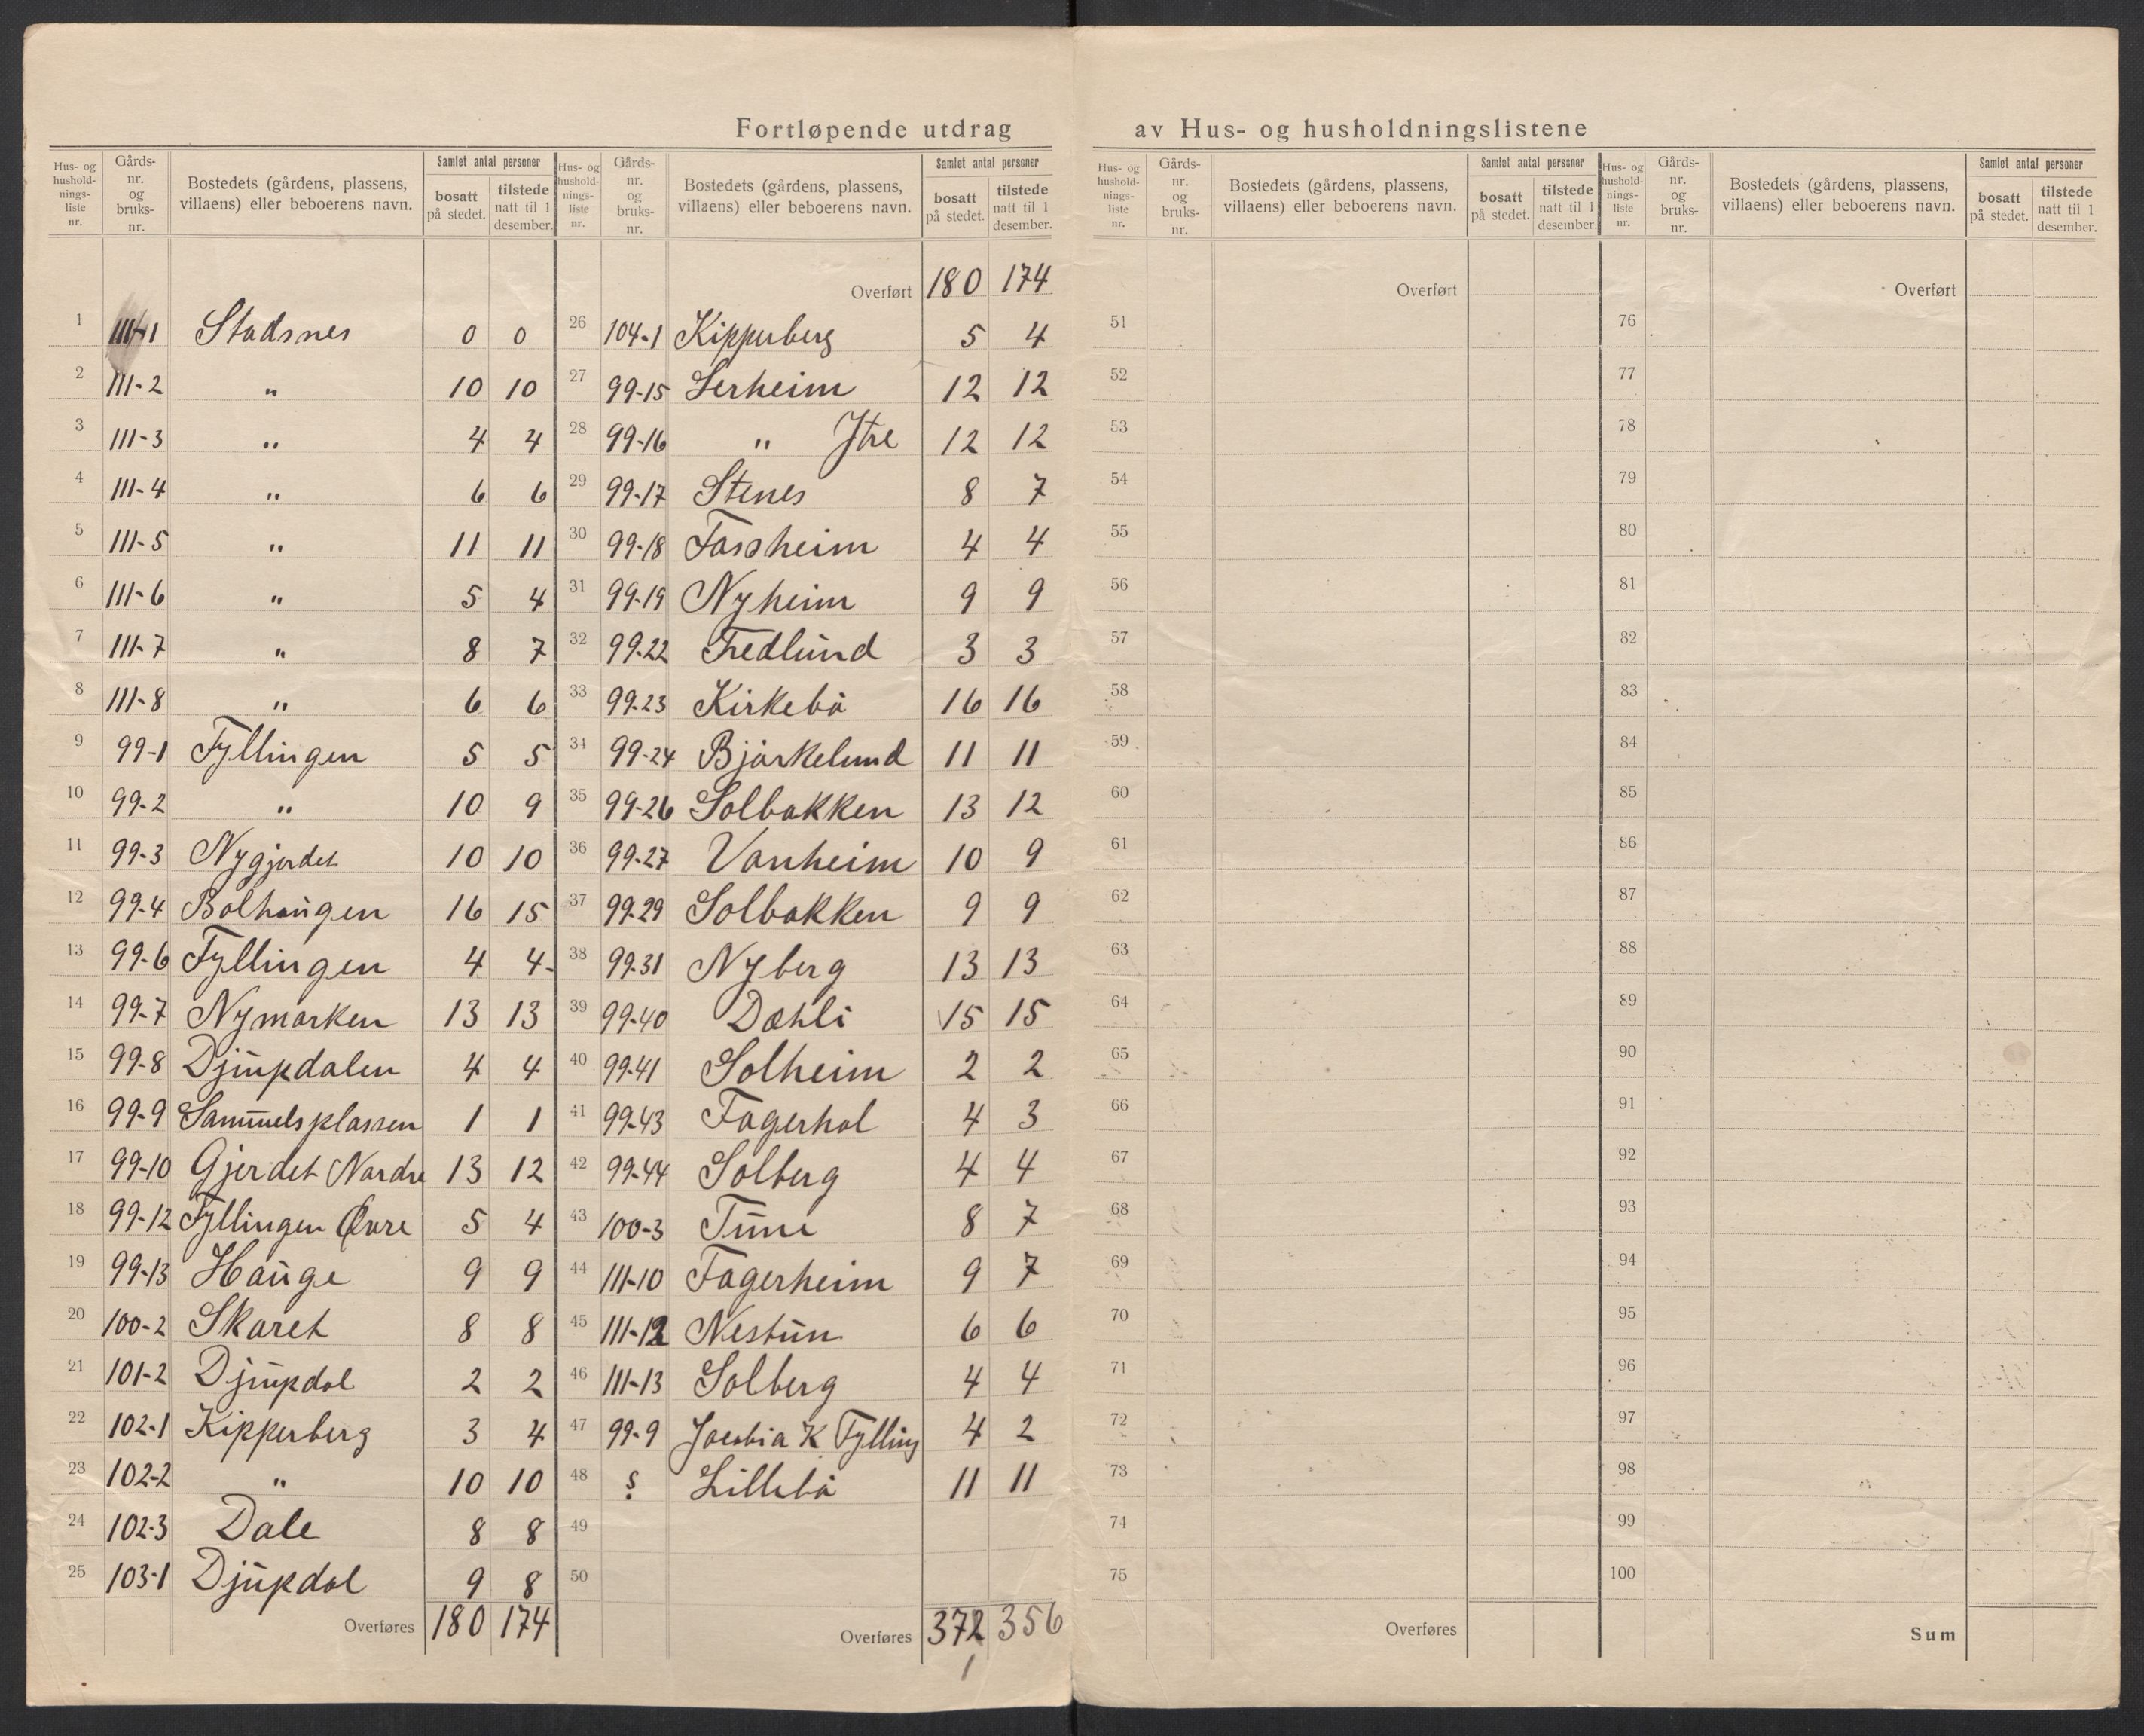 Fortløpende utdrag av Hus- og husholdningslistene
Hus- og husholdnings-liste nr. Gårds-nr. og bruks-nr. Bostedets (gårdens, plassens, villaens) eller beboerens navn. Samlet antal personer bosatt på stedet. tilstede natt til 1 desember.
1 111-1 Stadsnes 0 0
2 111-2 " 10 10
3 111-3 " 4 4
4 111-4 " 6 6
5 111-5 " 11 11
6 111-6 " 5 4
7 111-7 " 8 7
8 111-8 " 6 6
9 99-1 Fyllingen 5 5
10 99-2 " 10 9
11 99-3 Nygjerdet 10 10
12 99-4 Bolhaugen 16 15
13 99-6 Fyllingen 4 4
14 99-7 Nymarken 13 13
15 99-8 Djupdalen 4 4
16 99-9 Samuelsplassen 1 1
17 99-10 Gjerdet Nordre 13 12
18 99-12 Fyllingen Øvre 5 4
19 99-13 Hauge 9 9
20 100-2 Skaret 8 8
21 101-2 Djupdal 2 2
22 102-1 Kipperberg 3 4
23 102-2 " 10 10
24 102-3 Dale 8 8
25 103-1 Djupdal 9 8
Overføres 180 174
Hus- og husholdnings-liste nr. Gårds-nr. og bruks-nr. Bostedets (gårdens, plassens, villaens) eller beboerens navn. Samlet antal personer bosatt på stedet. tilstede natt til 1 desember.
Overført 180 174
26 104-1 Kipperberg 5 4
27 99-15 Lerheim 12 12
28 99-16 " Ytre 12 12
29 99-17 Stenes 8 7
30 99-18 Fossheim 4 4
31 99-19 Nyheim 9 9
32 99-22 Fredlund 3 3
33 99-23 Kirkebø 16 16
34 99-24 Bjørkelund 11 11
35 99-26 Solbakken 13 12
36 99-27 Vonheim 10 9
37 99-29 Solbakken 9 9
38 99-31 Nyberg 13 13
39 99-40 Dæhli 15 15
40 99-41 Solheim 2 2
41 99-43 Fagerhol 4 3
42 99-44 Solberg 4 4
43 100-3 Tune 8 7
44 111-10 Fagerheim 9 7
45 111-12 Nestun 6 6
46 111-13 Solberg 4 4
47 99-9 Jacobia K Fylling 4 2
48 Lillebø 11 11
49
50
Overføres 372 356
1
Hus- og hushold-nings-liste nr. Gårds-nr. og bruks-nr. Bostedets (gårdens, plassens, villaens) eller beboerens navn. Samlet antal personer bosatt på stedet. tilstede natt til 1 desember.
Overført
51
52
53
54
55
56
57
58
59
60
61
62
63
64
65
66
67
68
69
70
71
72
73
74
75
Overføres
Hus- og hushold-nings-liste nr. Gårds-nr. og bruks-nr. Bostedets (gårdens, plassens, villaens) eller beboerens navn. Samlet antal personer bosatt på stedet. tilstede natt til 1 desember.
Overført
76
77
78
79
80
81
82
83
84
85
86
87
88
89
90
91
92
93
94
95
96
97
98
99
100
Sum